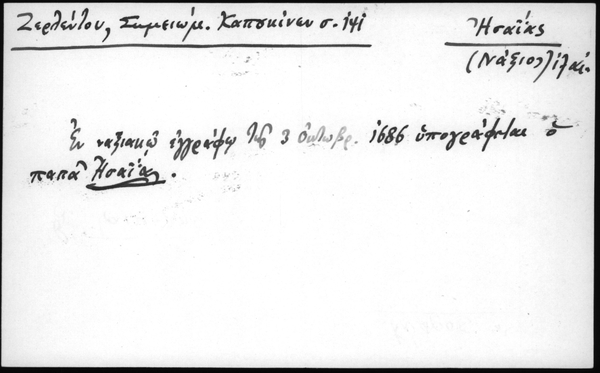 Ζερλέντου, Σημειώμ. Καπουκίνου σ. 141
Ἠσαΐας
(Νάξιος)
Ἐν ναξιακῷ ἐγγράφῳ τῆς 3 ὀκτωβρ. 1686 ὑπογράφεται ὁ
παπᾶ Ἠσαΐας.